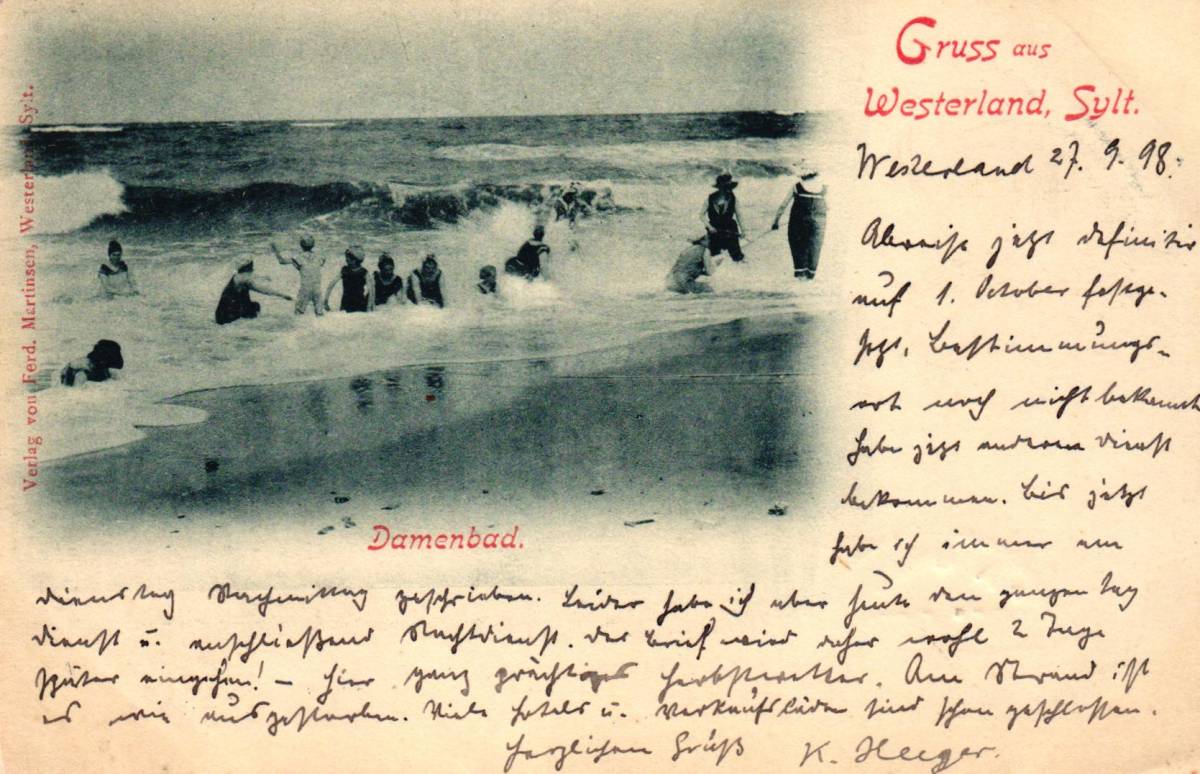 Gruss aus
Westerland, Sylt.
Westerland 27. 9. 98.
Abreise jetzt definitiv
auf 1. October festge-
setzt, Bestimmungs-
ort noch nicht bekannt
habe jetzt anderen Dienst
bekommen. Bis jetzt
habe ich immer am
Dienstag Nachmittag geschrieben. Leider habe ich aber heute den ganzen Tag
Dienst u. anschließend Nachtdienst. Der Brief wird daher wohl 2 Tage
später eingehen! – Hier ganz prächtiges Herbstwetter. Am Strand ist
es wie ausgestorben. Viele Hotels u. Verkaufsläden sind schon geschlossen.
Herzlichen Gruß K. Heeger.
Damenbad.
Verlag von Ferd. Martinsen, Westerland Sylt.